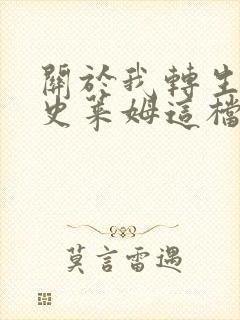 關於我轉生
史萊姆這檔
莫言雷遇